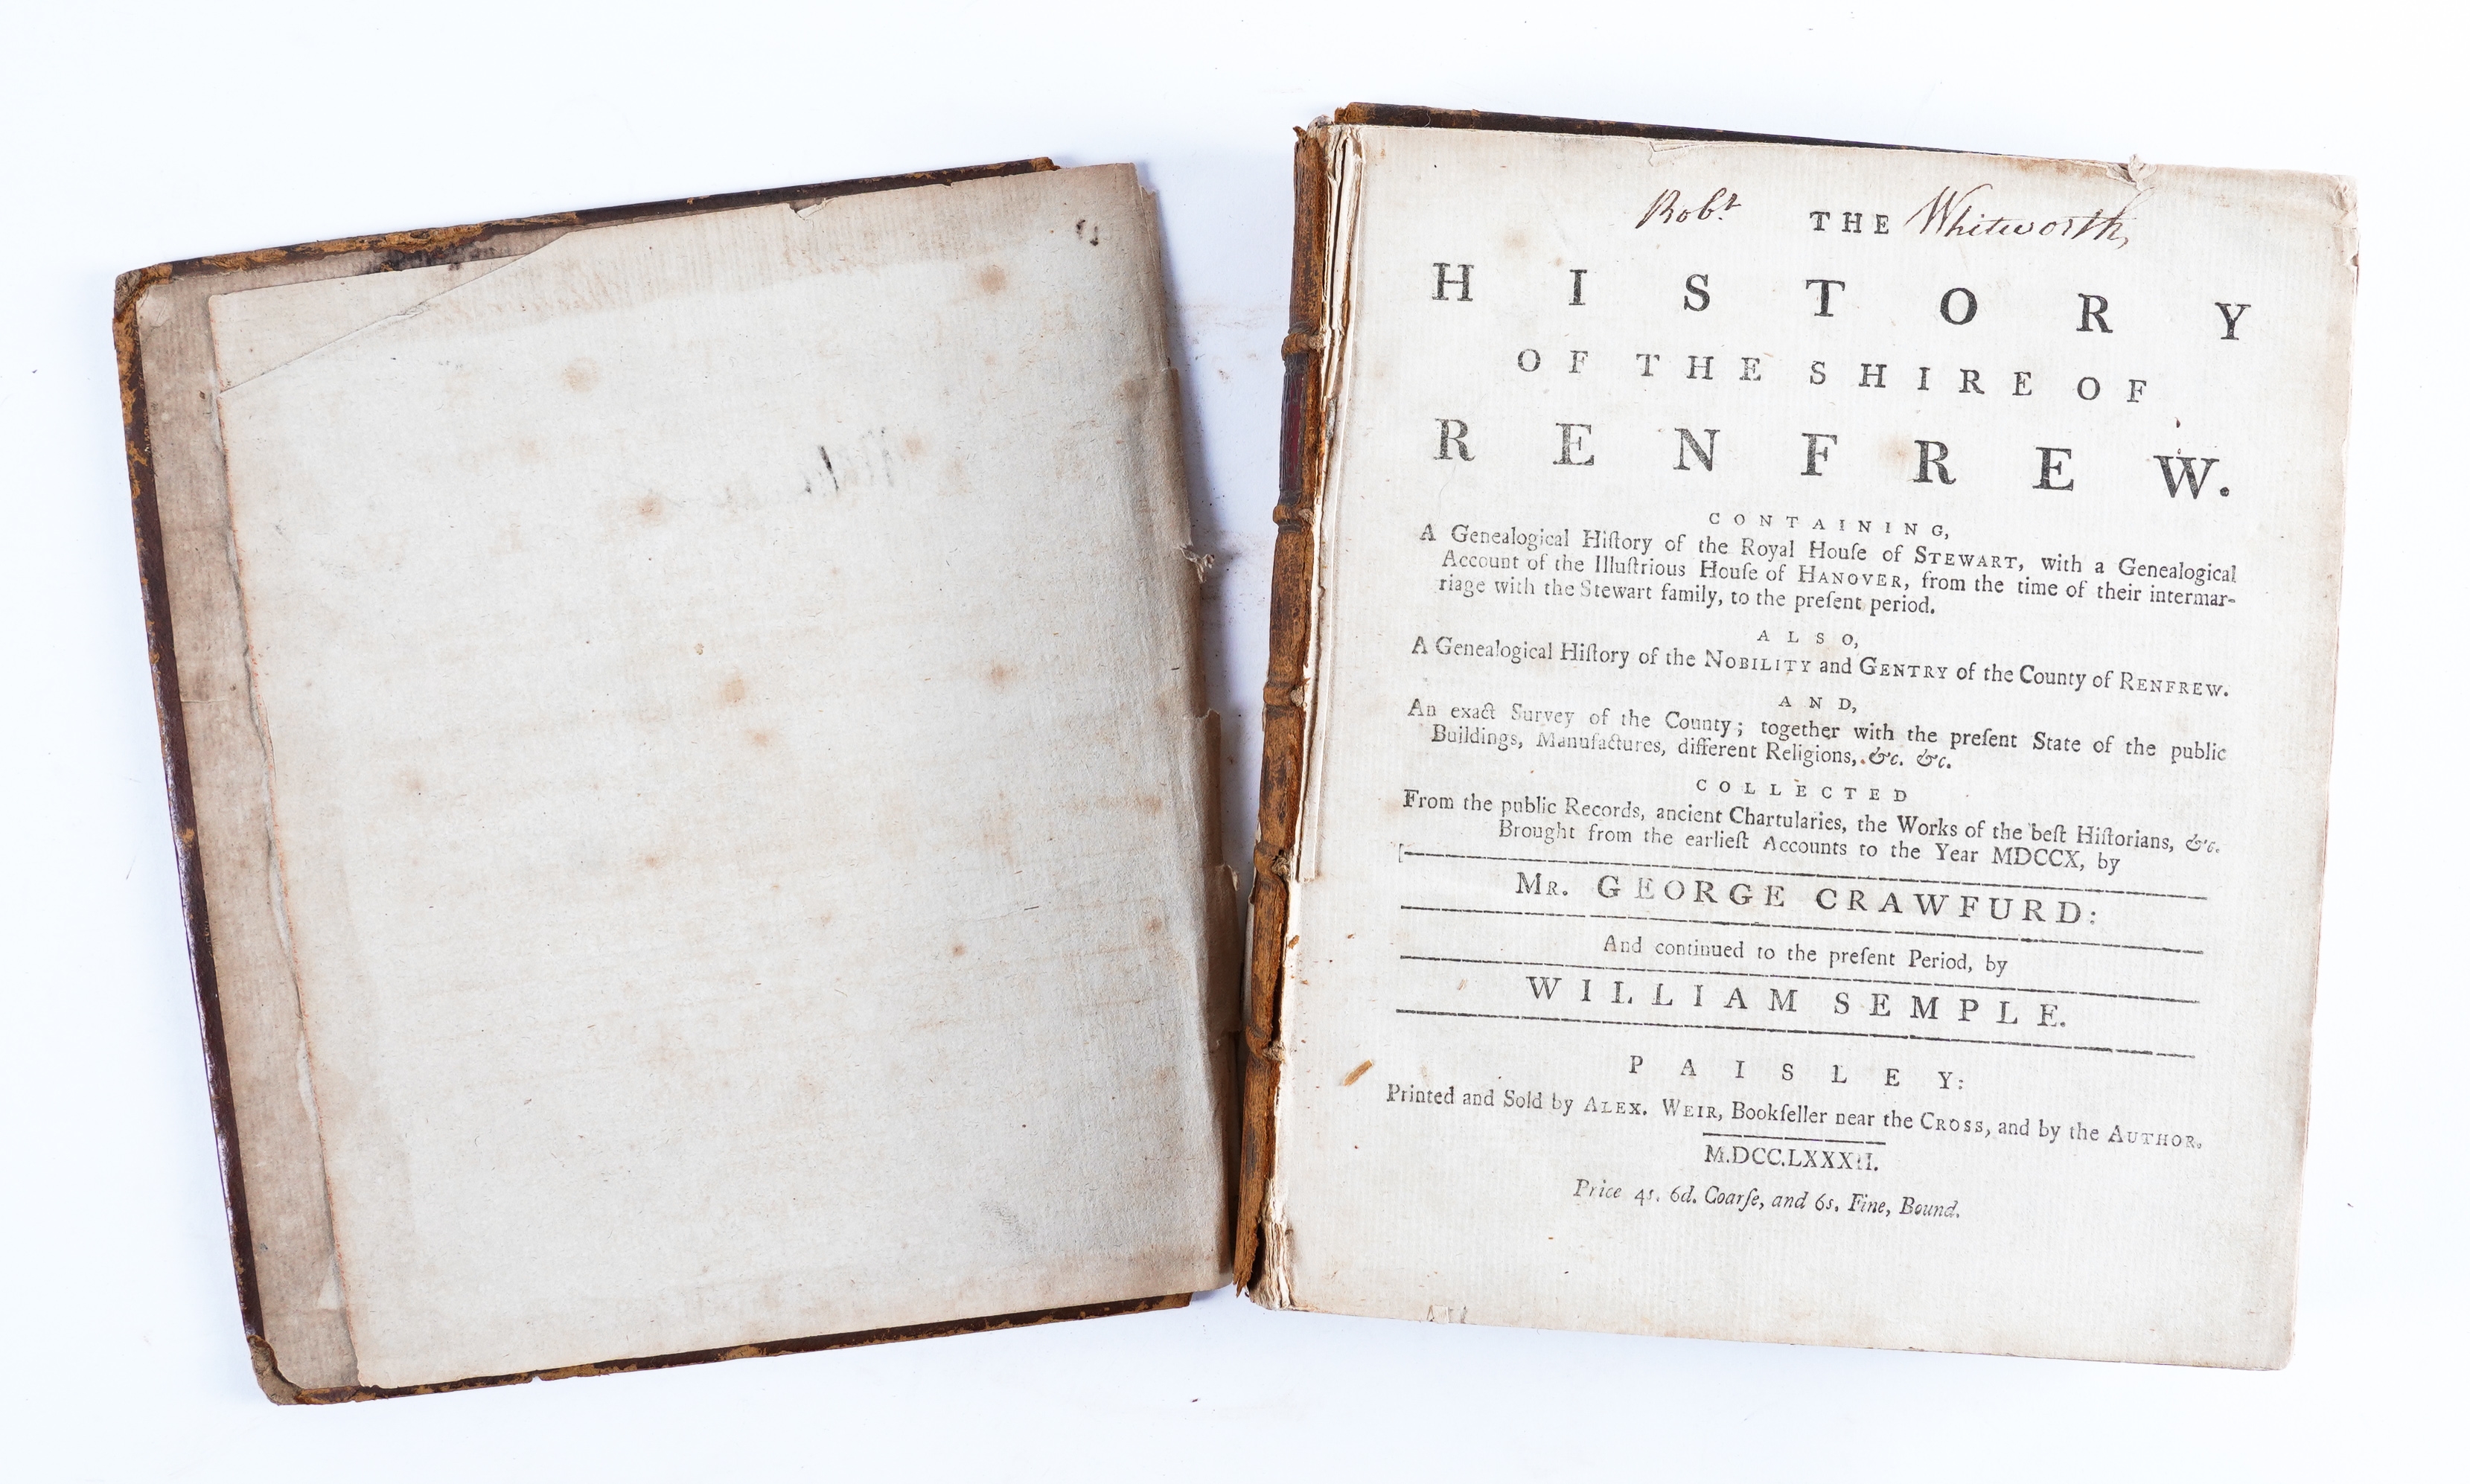 Robt THE Whitworth
HISTORY
OF THE SHIRE OF
RENFREW.
CONTAINING,
A Genealogical Hiſtory of the Royal Houſe of STEWART, with a Genealogical
Account of the Illuſtrious Houſe of HANOVER, from the time of their intermar-
riage with the Stewart family, to the preſent period.
ALSO,
A Genealogical Hiſtory of the NOBILITY and GENTRY of the County of RENFREW.
AND,
An exact Survey of the County; together with the preſent State of the public
Buildings, Manufactures, different Religions, &c. &c.
COLLECTED
From the public Records, ancient Chartularies, the Works of the beſt Hiſtorians, &c.
Brought from the earlieſt Accounts to the Year MDCCX, by
MR. GEORGE CRAWFURD:
And continued to the preſent Period, by
WILLIAM SEMPLE.
PAISLEY:
Printed and Sold by ALEX. WEIR, Bookſeller near the CROSS, and by the AUTHOR.
M.DCC.LXXXII.
Price 4s. 6d. Coarſe, and 6s. Fine, Bound.